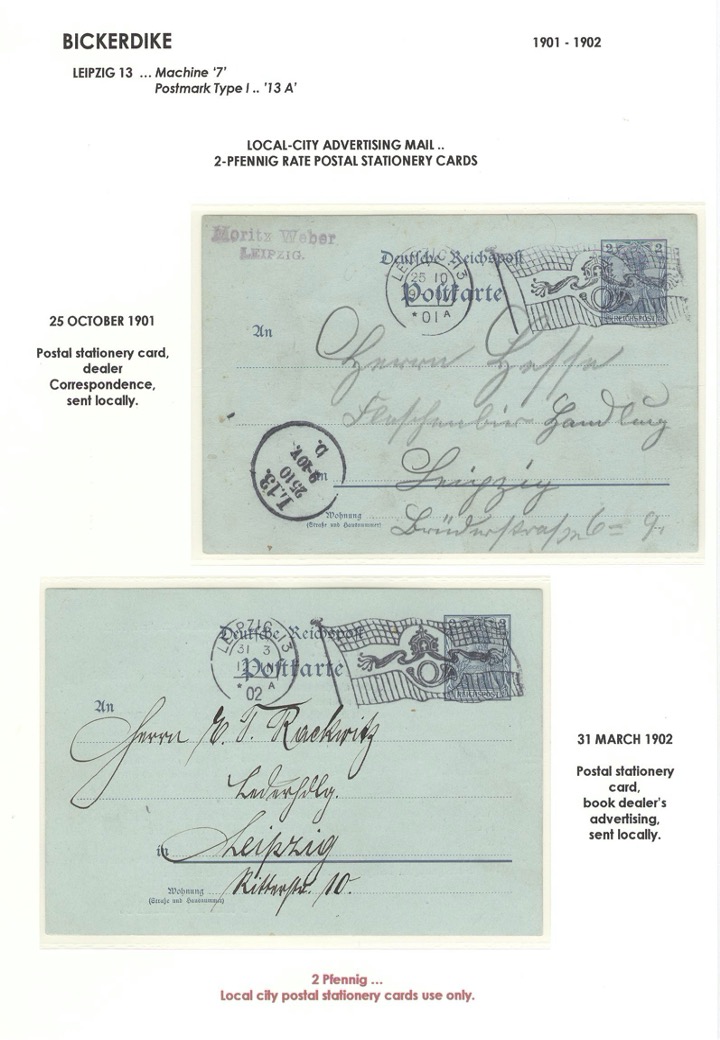 BICKERDIKE
1901 - 1902
LEIPZIG 13 ... Machine ‘7’
Postmark Type I .. ’13 A’
LOCAL-CITY ADVERTISING MAIL ..
2-PFENNIG RATE POSTAL STATIONERY CARDS
25 OCTOBER 1901
Postal stationery card,
dealer
Correspondence,
sent locally.
Moritz Weber
LEIPZIG.
Deutsche Reichspost
Postkarte
LEIPZIG 13
25 10
* 01 A
2 2
REICHSPOST
An
Herrn Hesse
Flaschenbier Handlung
in Leipzig
Wohnung
(Straße und Hausnummer)
Brüderstraße 6 = 9
L.13.
25 10
9-10V.
D.
Deutsche Reichspost
Postkarte
LEIPZIG 13
31 3
* 02 A
2 2
REICHSPOST
An
Herrn E. T. Rackwitz
Lederhdlg.
in Leipzig
Wohnung
(Straße und Hausnummer)
Ritterstr. 10.
31 MARCH 1902
Postal stationery
card,
book dealer's
advertising,
sent locally.
2 Pfennig ...
Local city postal stationery cards use only.